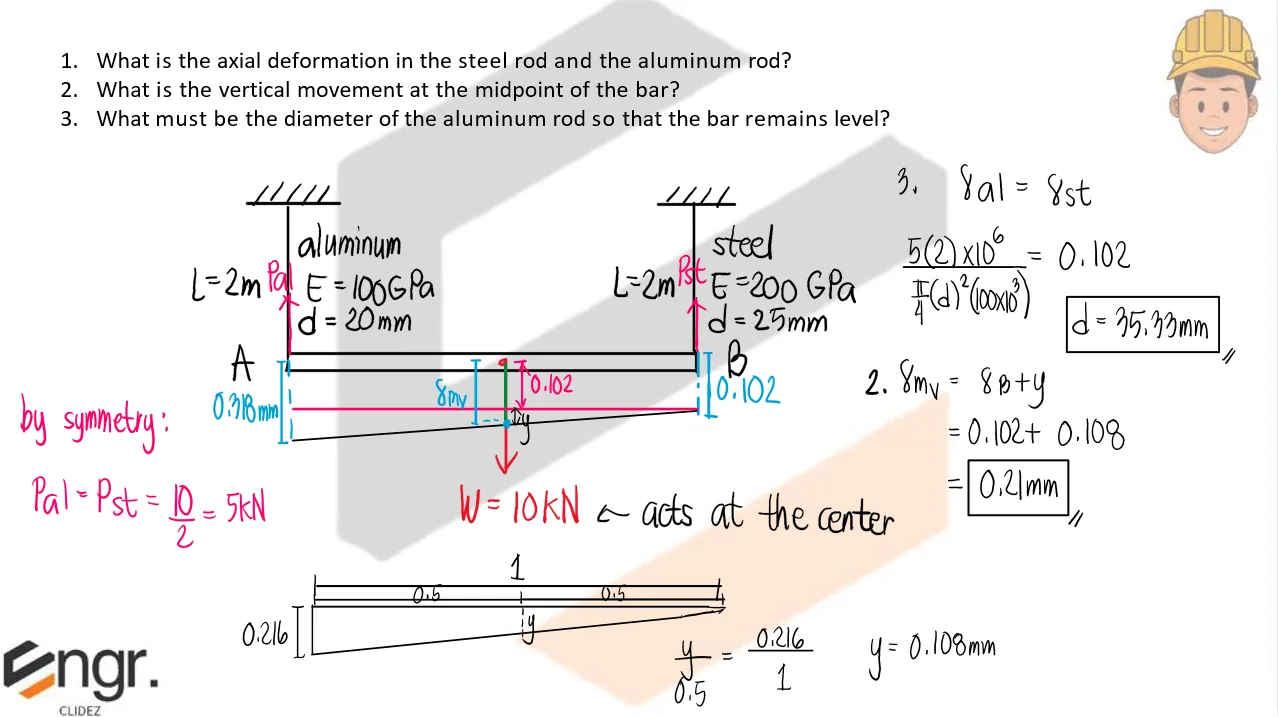 1. What is the axial deformation in the steel rod and the aluminum rod?
2. What is the vertical movement at the midpoint of the bar?
3. What must be the diameter of the aluminum rod so that the bar remains level?
aluminum
L=2m Pal E=100GPa
d=20mm
steel
L=2m Pst E=200 GPa
d=25mm
A
B
0.318mm
δmv
0.102
y
0.102
by symmetry:
Pal = Pst = 10/2 = 5kN
W = 10kN ← acts at the center
3. δal = δst
5(2)x10⁶ / π/4(d)²(100x10³) = 0.102
d = 35.33mm
2. δmv = δB + y
= 0.102 + 0.108
= 0.21mm
1
0.5 0.5
0.216
y
y/0.5 = 0.216/1
y = 0.108mm
Engr.
CLIDEZ